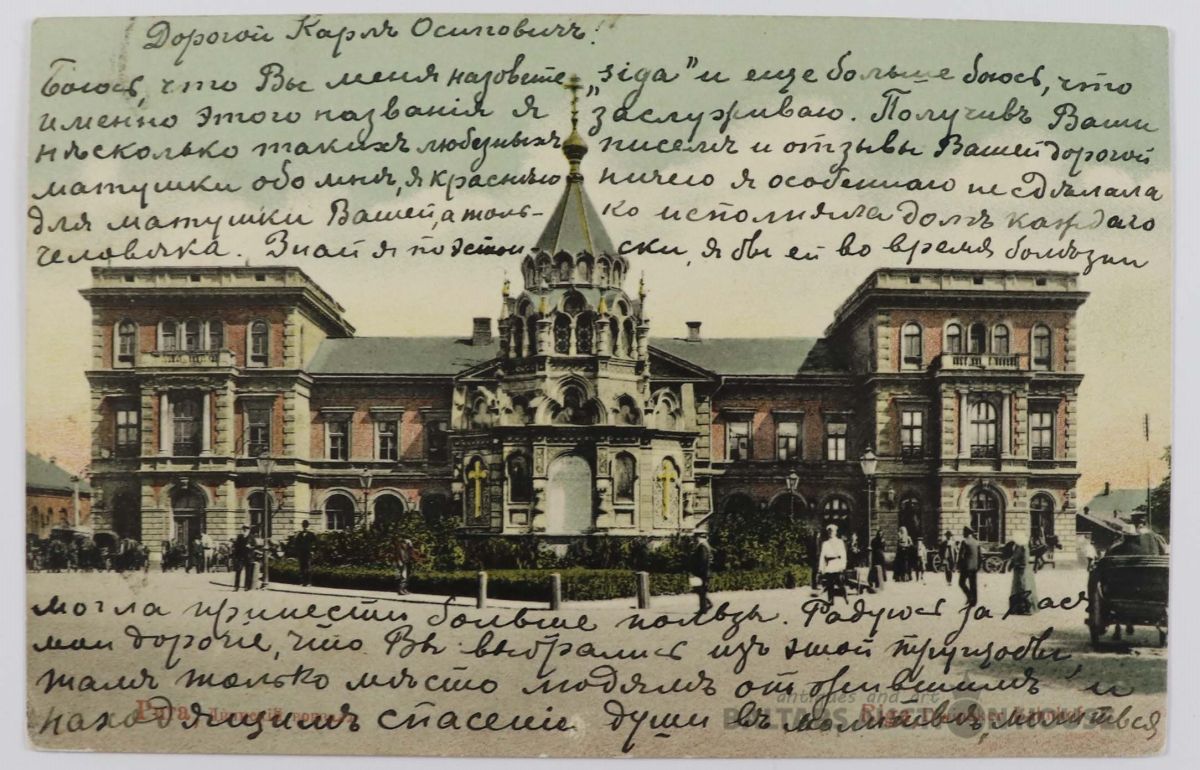 Дорогой Карлъ Осиповичъ!
Боюсь, что Вы меня назовете „siga” и еще больше боюсь, что
именно этого названія я заслуживаю. Получивъ Ваши
нѣсколько такихъ любезныхъ писемъ и отзывы Вашей дорогой
матушки обо мнѣ, я краснѣю ничего я особеннаго не сдѣлала
для матушки Вашей, а толь- ко исполняла долгъ каждаго
человѣка. Знай я по эстон ски, я бы ей во время болѣзни
могла принести больше пользы. Радуюсь за Васъ
мои дорогіе, что Вы выбрались изъ этой трущобы,
тамъ только мѣсто людямъ отжившимъ и
находящимъ спасеніе души въ молитвѣ, молиться
Рига
Riga
antiques and art